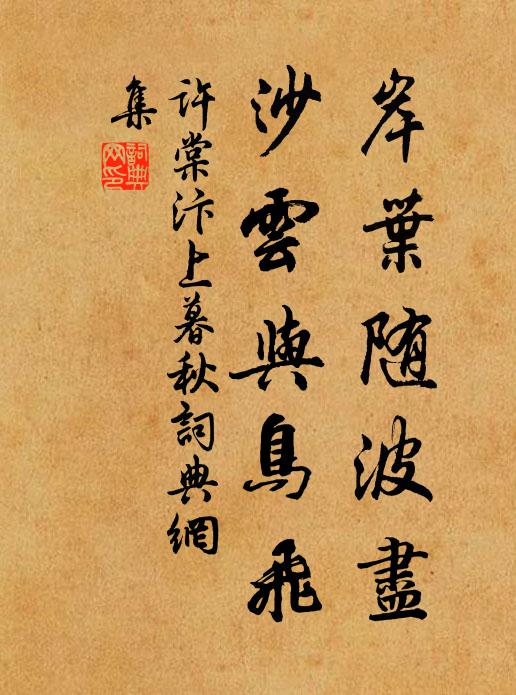 岸葉随波盡
沙雲與鳥飛
許棠汴上暮秋詞典網
集
詞典
网印